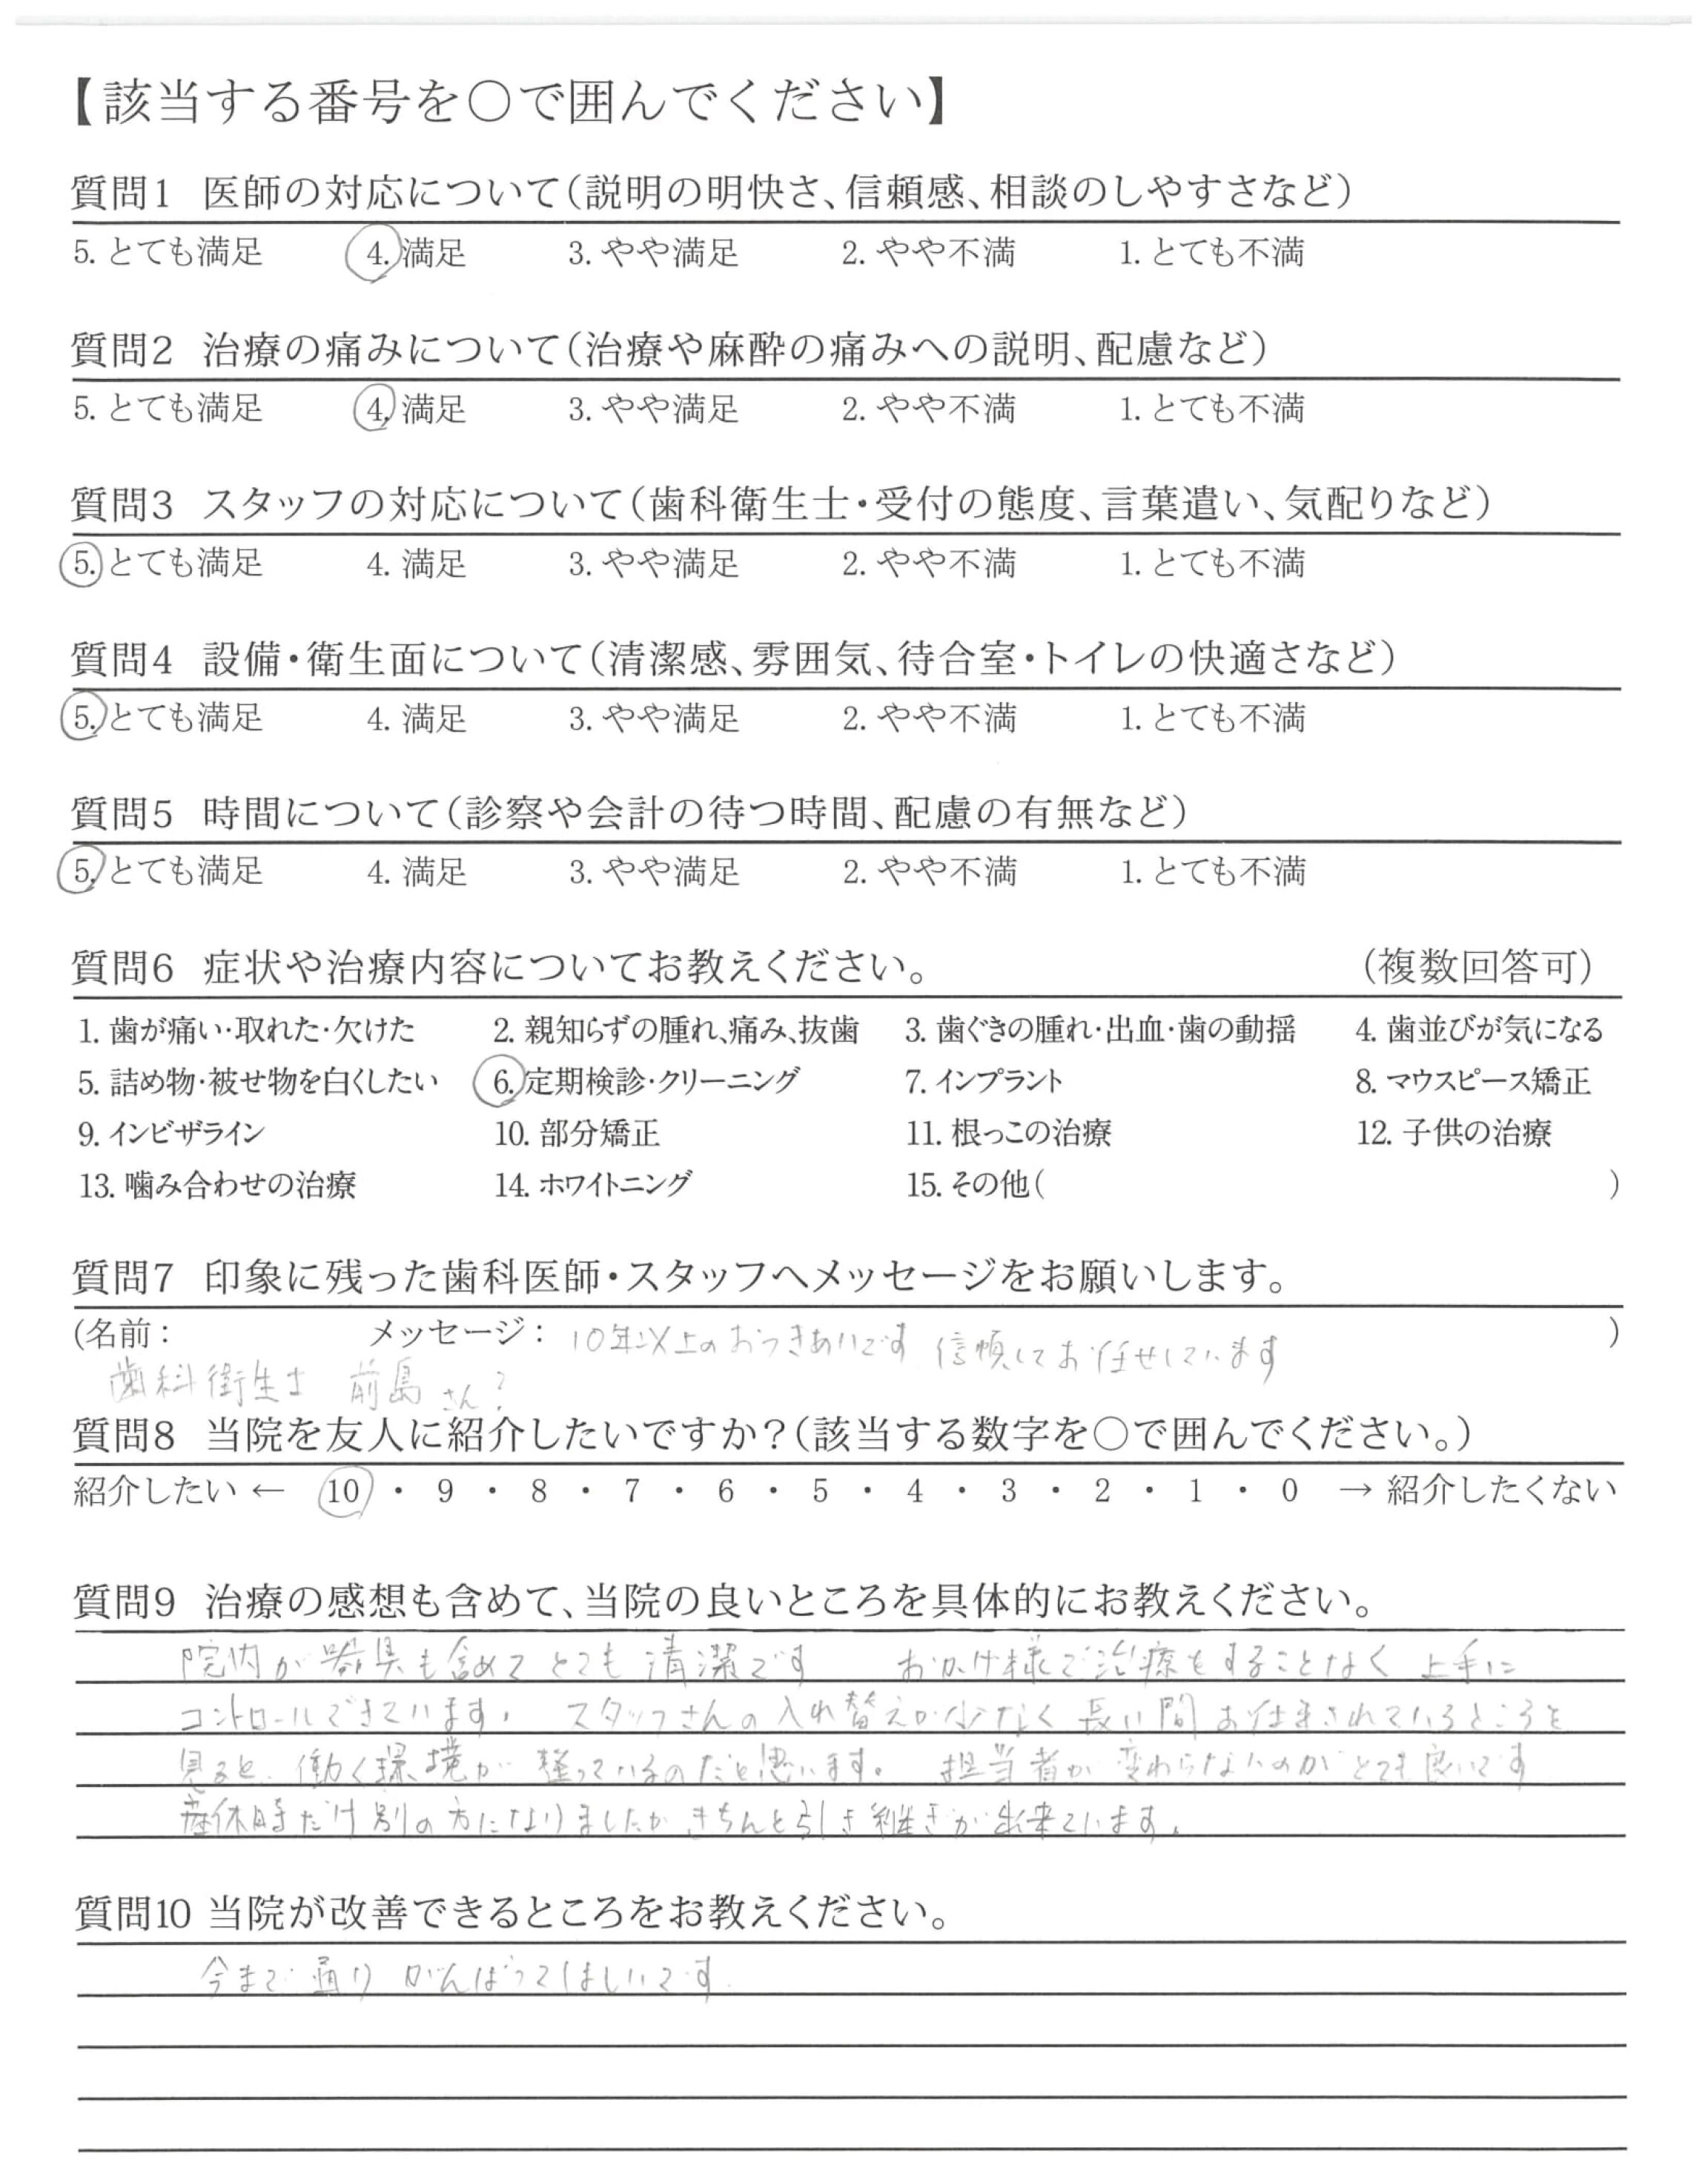 【該当する番号を○で囲んでください】
質問1 医師の対応について(説明の明快さ、信頼感、相談のしやすさなど)
5. とても満足 4. 満足 3. やや満足 2. やや不満 1. とても不満
質問2 治療の痛みについて(治療や麻酔の痛みへの説明、配慮など)
5. とても満足 4. 満足 3. やや満足 2. やや不満 1. とても不満
質問3 スタッフの対応について(歯科衛生士・受付の態度、言葉遣い、気配りなど)
5. とても満足 4. 満足 3. やや満足 2. やや不満 1. とても不満
質問4 設備・衛生面について(清潔感、雰囲気、待合室・トイレの快適さなど)
5. とても満足 4. 満足 3. やや満足 2. やや不満 1. とても不満
質問5 時間について(診察や会計の待つ時間、配慮の有無など)
5. とても満足 4. 満足 3. やや満足 2. やや不満 1. とても不満
質問6 症状や治療内容についてお教えください。 (複数回答可)
1. 歯が痛い・取れた・欠けた 2. 親知らずの腫れ、痛み、抜歯 3. 歯ぐきの腫れ・出血・歯の動揺 4. 歯並びが気になる
5. 詰め物・被せ物を白くしたい 6. 定期検診・クリーニング 7. インプラント 8. マウスピース矯正
9. インビザライン 10. 部分矯正 11. 根っこの治療 12. 子供の治療
13. 噛み合わせの治療 14. ホワイトニング 15. その他( )
質問7 印象に残った歯科医師・スタッフへメッセージをお願いします。
(名前: メッセージ: 10年以上のおつきあいです 信頼してお任せしています )
歯科衛生士 前島さん?
質問8 当院を友人に紹介したいですか?(該当する数字を○で囲んでください。)
紹介したい ← 10 ・ 9 ・ 8 ・ 7 ・ 6 ・ 5 ・ 4 ・ 3 ・ 2 ・ 1 ・ 0 → 紹介したくない
質問9 治療の感想も含めて、当院の良いところを具体的にお教えください。
院内が器具も含めてとても清潔です おかげ様で治療をすることなく 上手に
コントロールできています。 スタッフさんの入れ替えが少なく長い間お仕事されているところを
見ると、働く環境が整っているのだと思います。 担当者が変わらないのがとても良いです
産休時だけ別の方になりましたがきちんと引き継ぎが出来ています。
質問10 当院が改善できるところをお教えください。
今まで通りがんばってほしいです